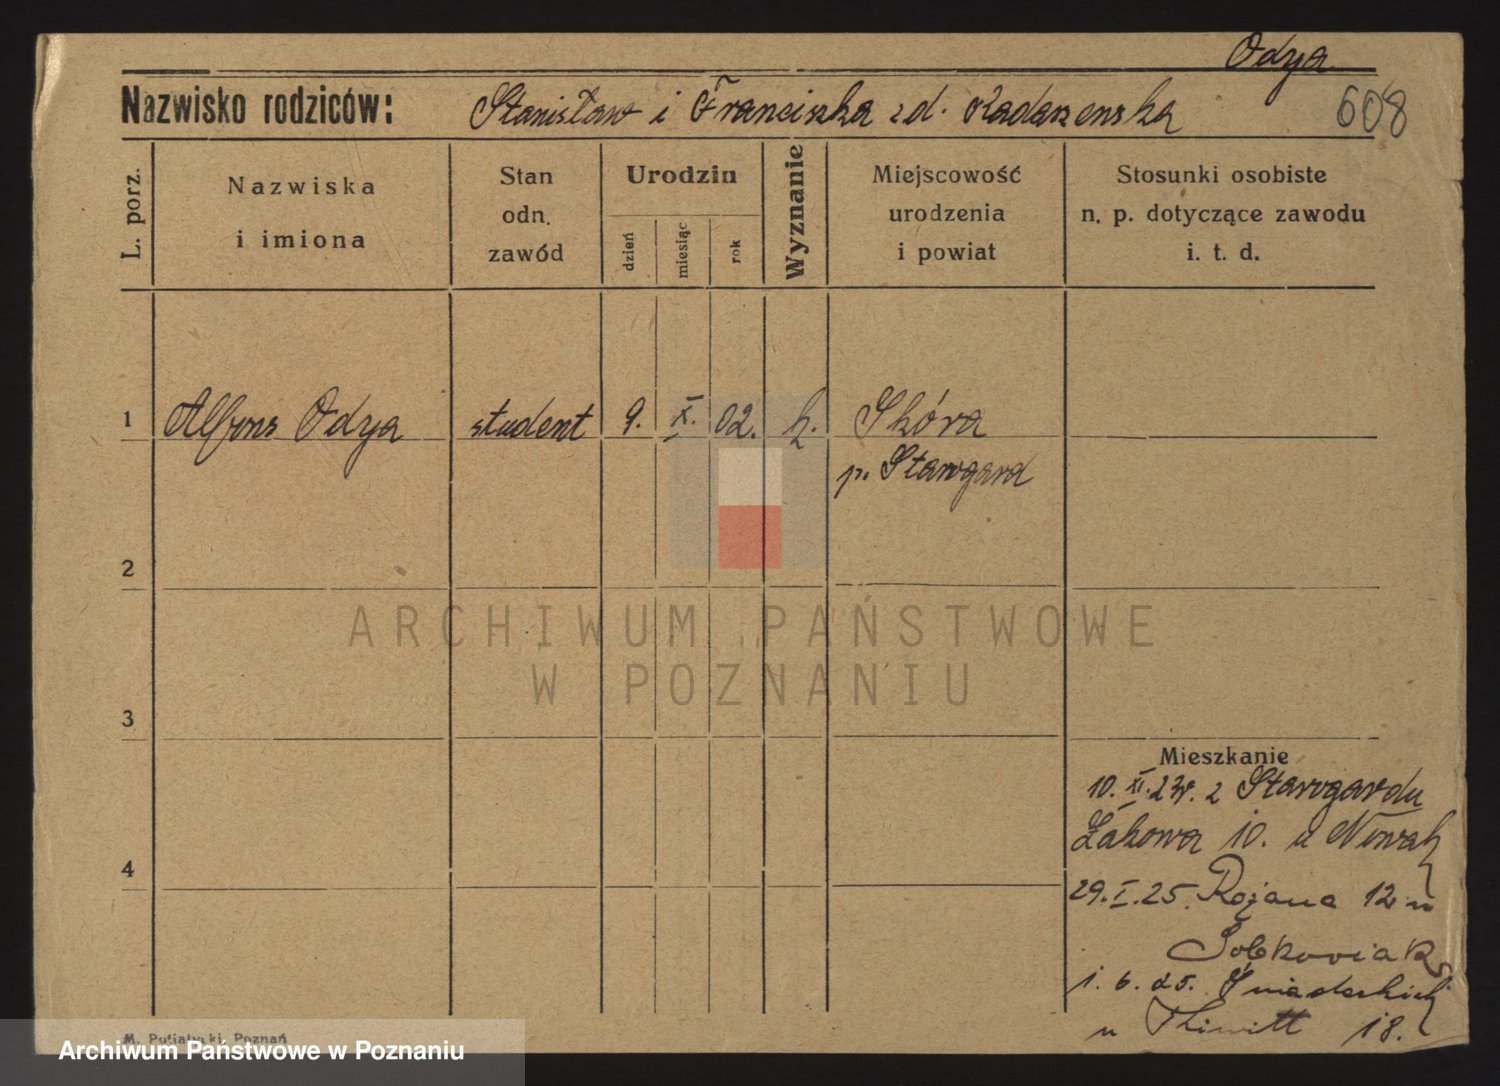 Odya
Nazwisko rodziców: Stanisław i Franciszka zd. Radarenska
608
L. porz.
Nazwiska
i imiona
Stan
odn.
zawód
Urodzin
dzień
miesiąc
rok
Wyznanie
Miejscowość
urodzenia
i powiat
Stosunki osobiste
n. p. dotyczące zawodu
i. t. d.
1 Alfons Odya student 9. X. 02. k. Skóra
p. Starogard
2
3
4
ARCHIWUM PAŃSTWOWE
W POZNANIU
Mieszkanie
10. XI. 23r. z Starogardu
Łąkowa 10. u Nowak
29. I. 25. Różana 12 u
Sobkowiak
1. 6. 25. Śniadeckich
u 18.
M. Poznań
Archiwum Państwowe w Poznaniu